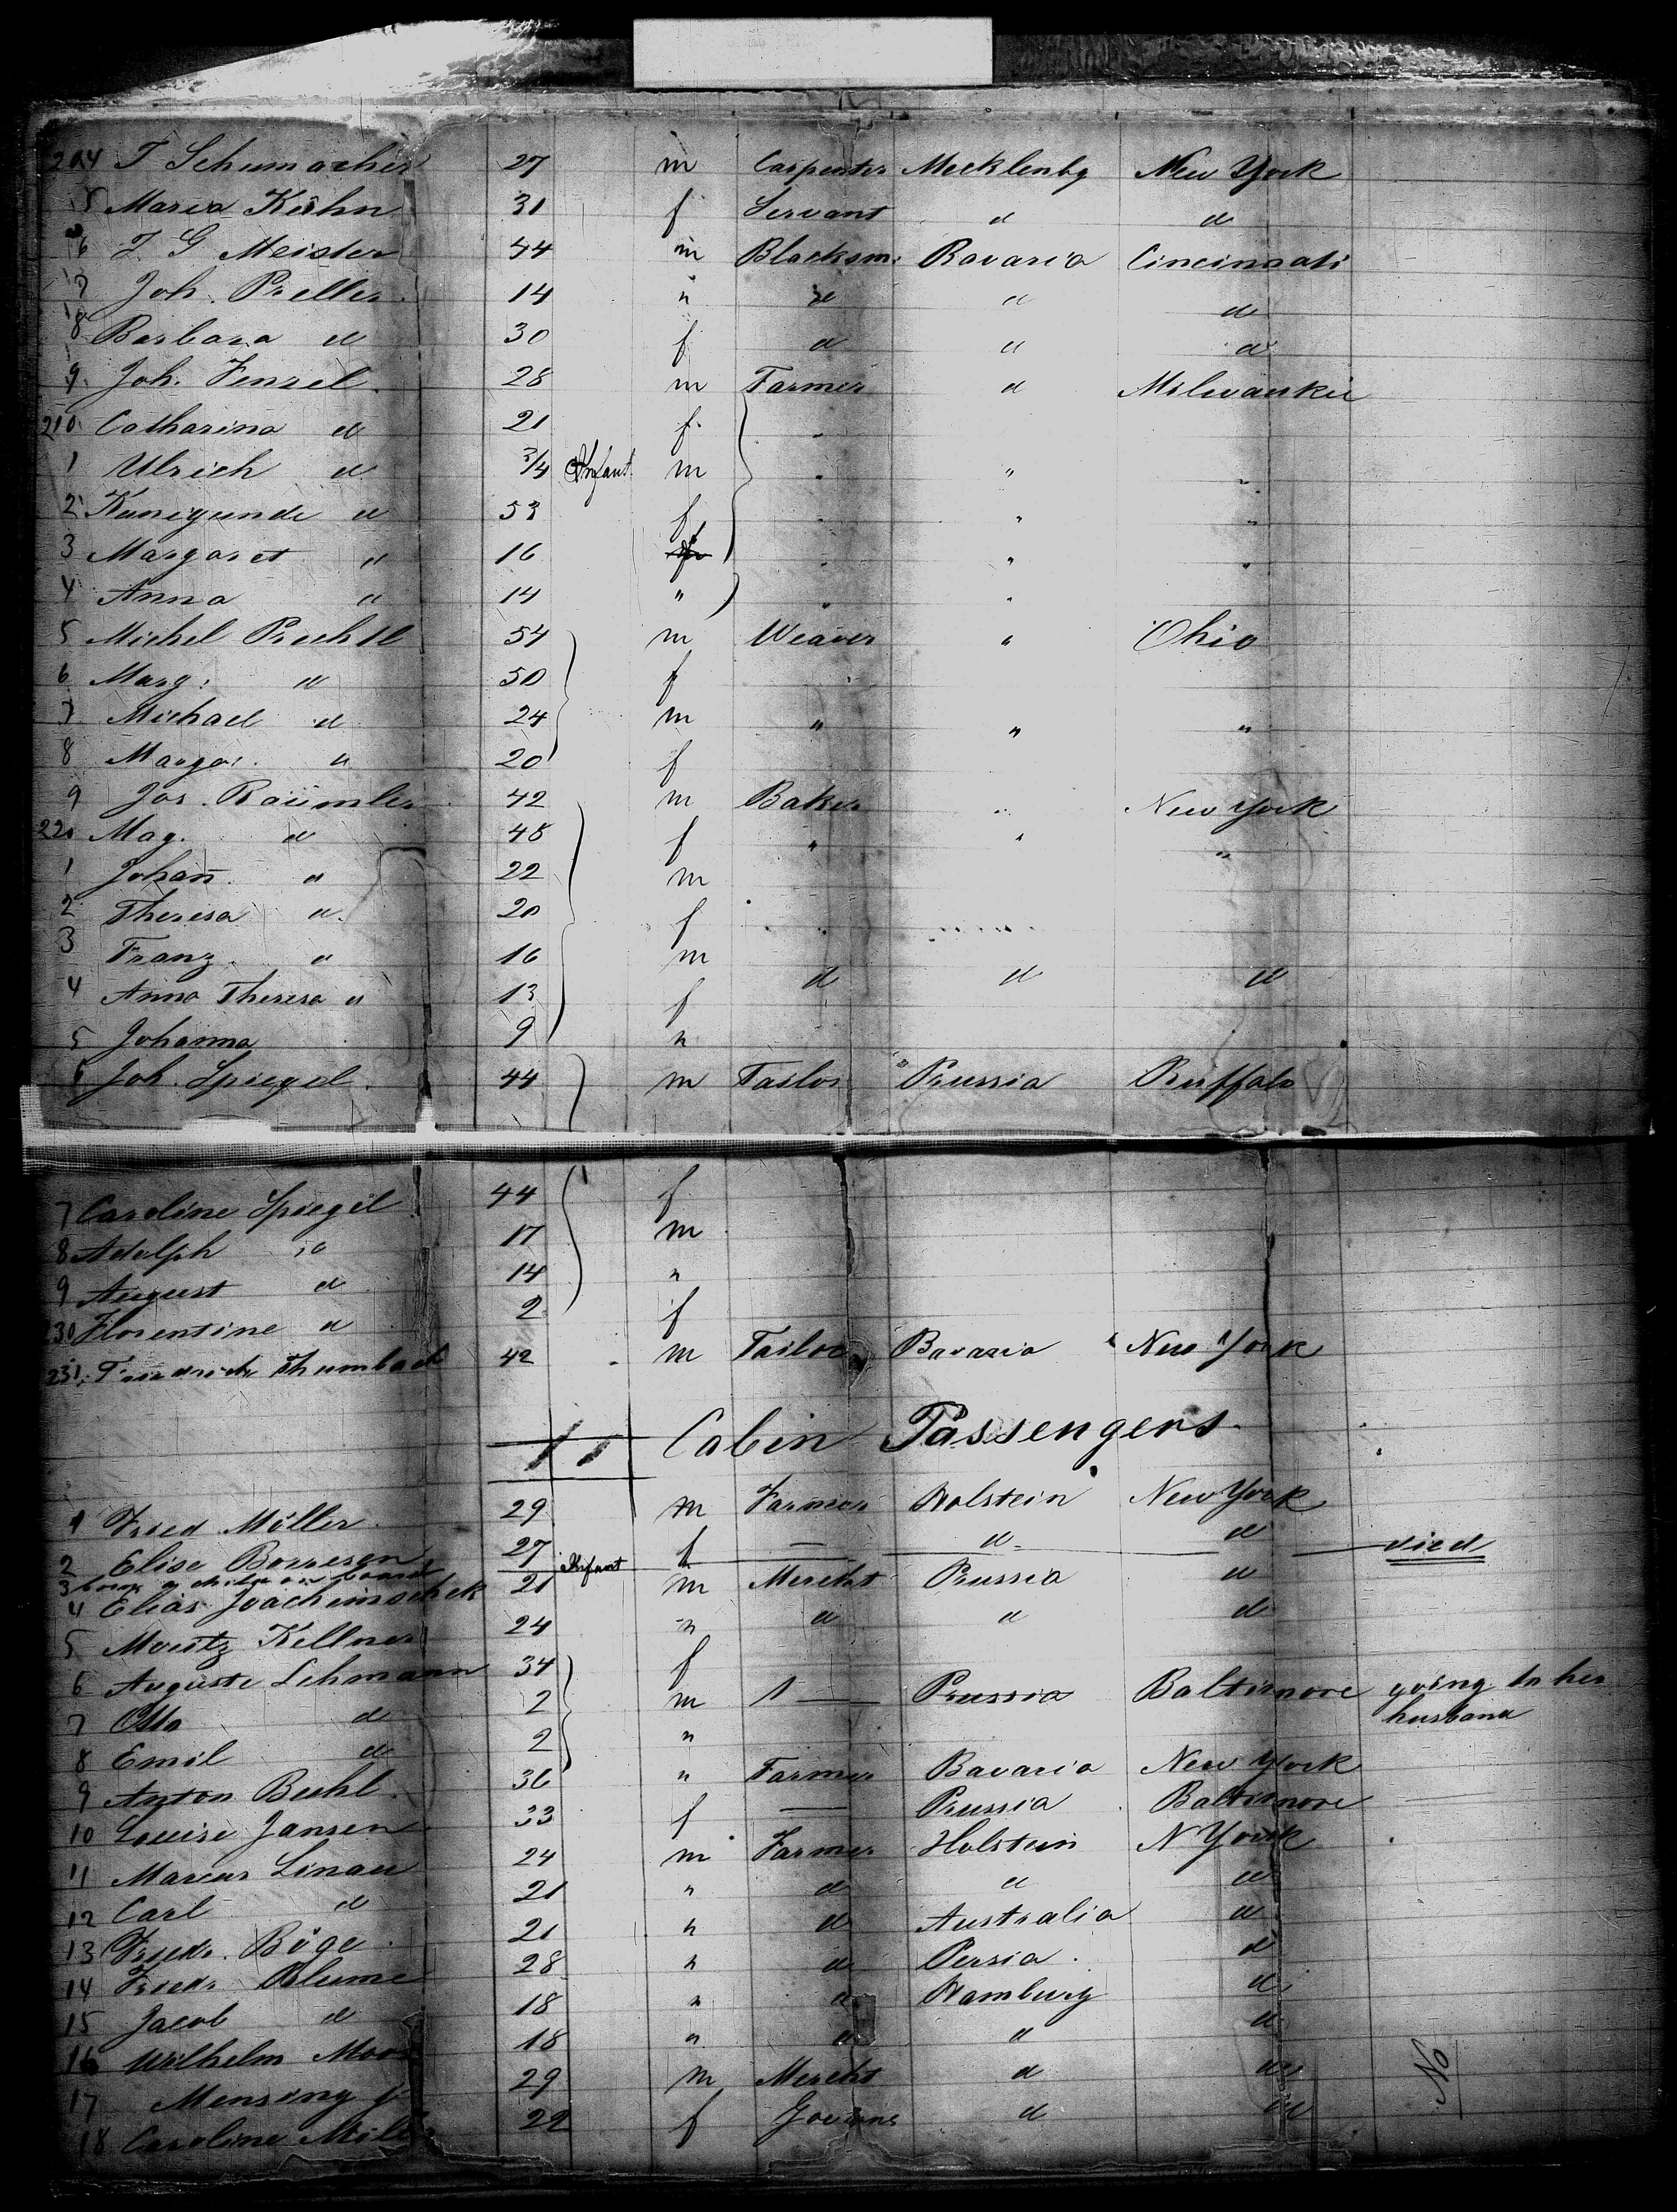 204 T Schumacher 27 m Carpenter Mecklenbg New York
5 Maria Kühn 31 f Servant d d
6 J. G Meister 44 m Blacksm. Bavaria Cincinnati
7 Joh. Preller 14 " d d d
8 Barbara d 30 f d d d
9 Joh. Fenzel 28 m Farmer d Milwaukie
210 Catharina d 21 f "
1 Ulrich d 3/4 Infant m " " "
2 Kunigunde d 53 f " " "
3 Margaret " 16 f " " "
4 Anna " 14 " " "
5 Michel Prechtl 54 m Weaver " Ohio
6 Marg: d 50 f
7 Michael d 24 m " " "
8 Margar. " 20 f
9 Jos. Baümler 42 m Baker " New York
220 Mag. d 48 f " " "
1 Johan̄ " 22 m
2 Theresa d. 20 f
3 Franz " 16 m
4 Anna Theresa d 13 f d d d
5 Johanna 9 "
6 Joh. Spiegel 44 m Tailor Prussia Buffalo
7 Caroline Spiegel 44 f
8 Adolph d 17 m
9 August d 14 "
230 Florentine d 2 f
231. Friedrich Thumbach 42 m Tailor Bavaria New York
11 Cabin Passengers
1 Fried Möller 29 m Farmer Holstein New York
2 Elise Borresen 27 f — d d died
3 born a child on board Infant
4 Elias Joachimschek 21 m Mercht Prussia d
5 Moritz Kellner 24 " d d d
6 Auguste Lehmann 34 f
7 Otto d 2 m Prussia Baltimore going to her husband
8 Emil d 2 "
9 Anton Buhl 36 " Farmer Bavaria New York
10 Louise Jansen 33 f — Prussia Baltimore
11 Marcus Linau 24 m Farmer Holstein N York
12 Carl d 21 " d d d
13 Friedr. Böge 21 " d Australia d
14 Friedr Blume 28 " d Persia d
15 Jacob d 18 " d Hamburg d
16 Wilhelm Moor 18 " d d d
17 Mensing 29 m Mercht d d
18 Caroline Möller 22 f d d
No